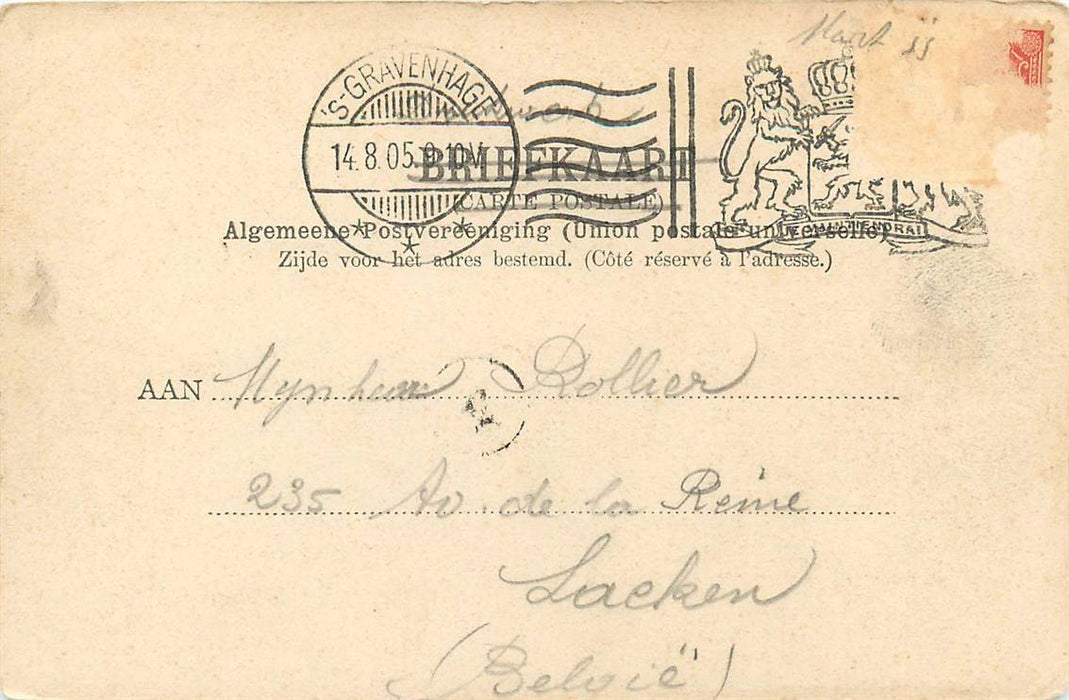 'S-GRAVENHAGE
14.8.05.9-10V
BRIEFKAART
(CARTE POSTALE)
Algemeene Postvereeniging (Union postale universelle)
Zijde voor het adres bestemd. (Côté réservé à l'adresse.)
AAN Mynheer Rollier
235 Av. de la Reine
Laeken
(Belvië)